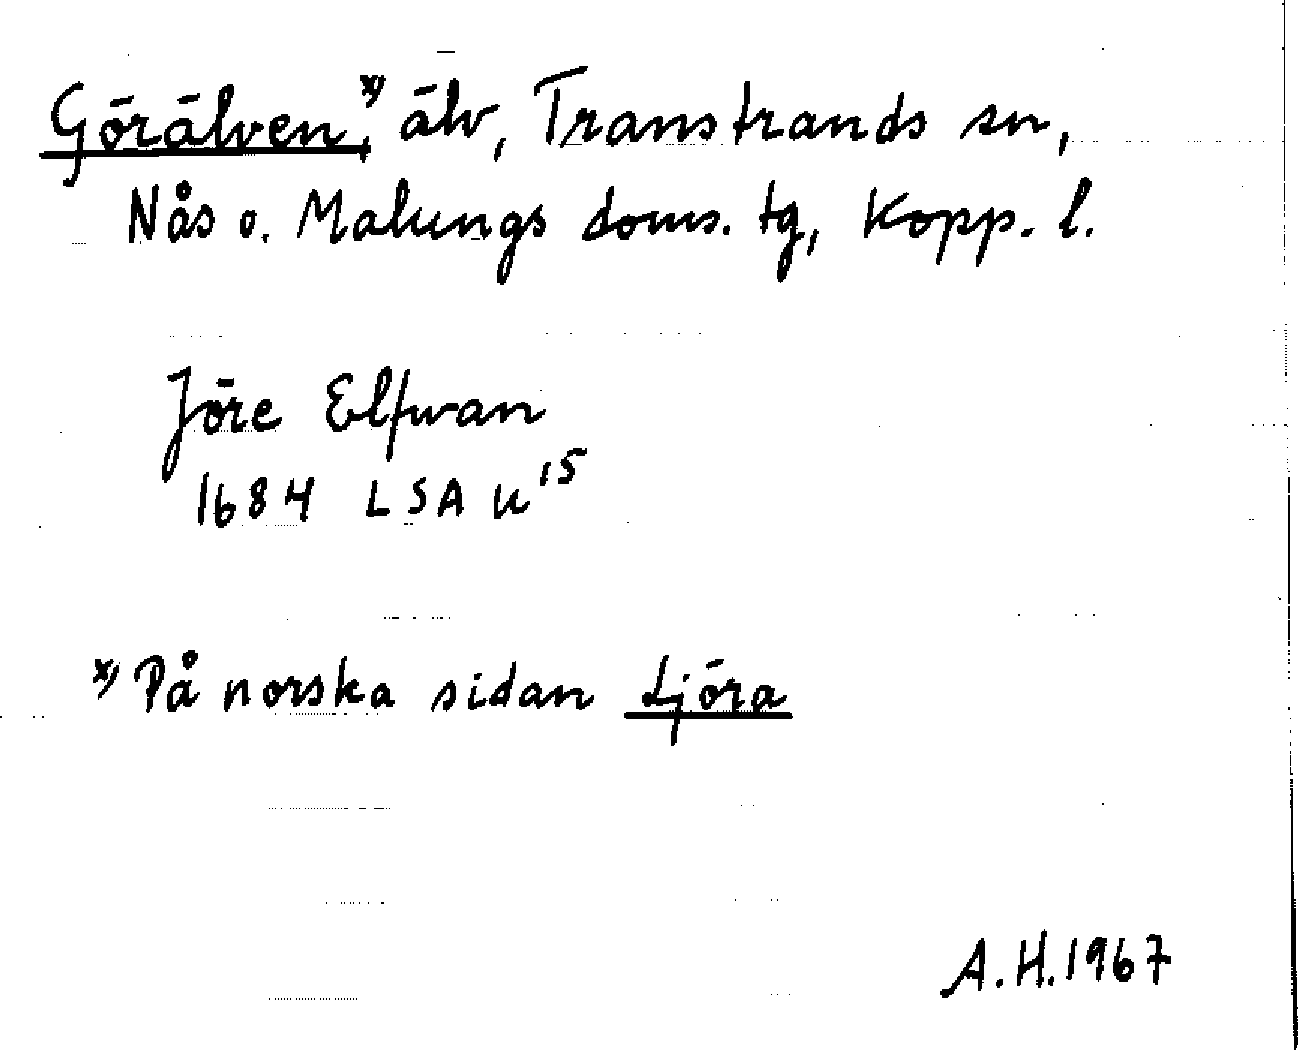 Görälven,x) älv, Transtrands sn,
Nås o. Malungs doms. tg, Kopp. l.
Jöre Elfwan
1684 LSA U15
x) På norska sidan Ljöra
A.H. 1967